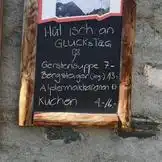 Hüt isch än
GLÜCKSTAG
Gerstensuppe 7.-
Bergsteiger (og) 13.-
Älplermakkaronen
Kuchen 4.-/6.-